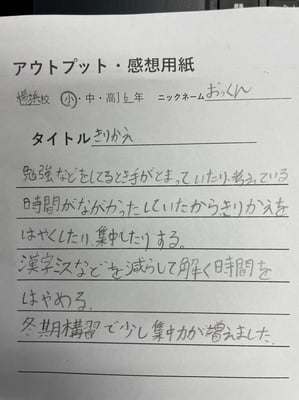 アウトプット・感想用紙
横浜校 小・中・高 6年 ニックネーム おっくん
タイトル きりかえ
勉強などをしてるとき手がとまっていたり、考えている
時間がながかったしていたからきりかえを
はやくしたり、集中したりする。
漢字ミスなどを減らして解く時間を
はやめる。
冬期講習で少し集中力が増えました。